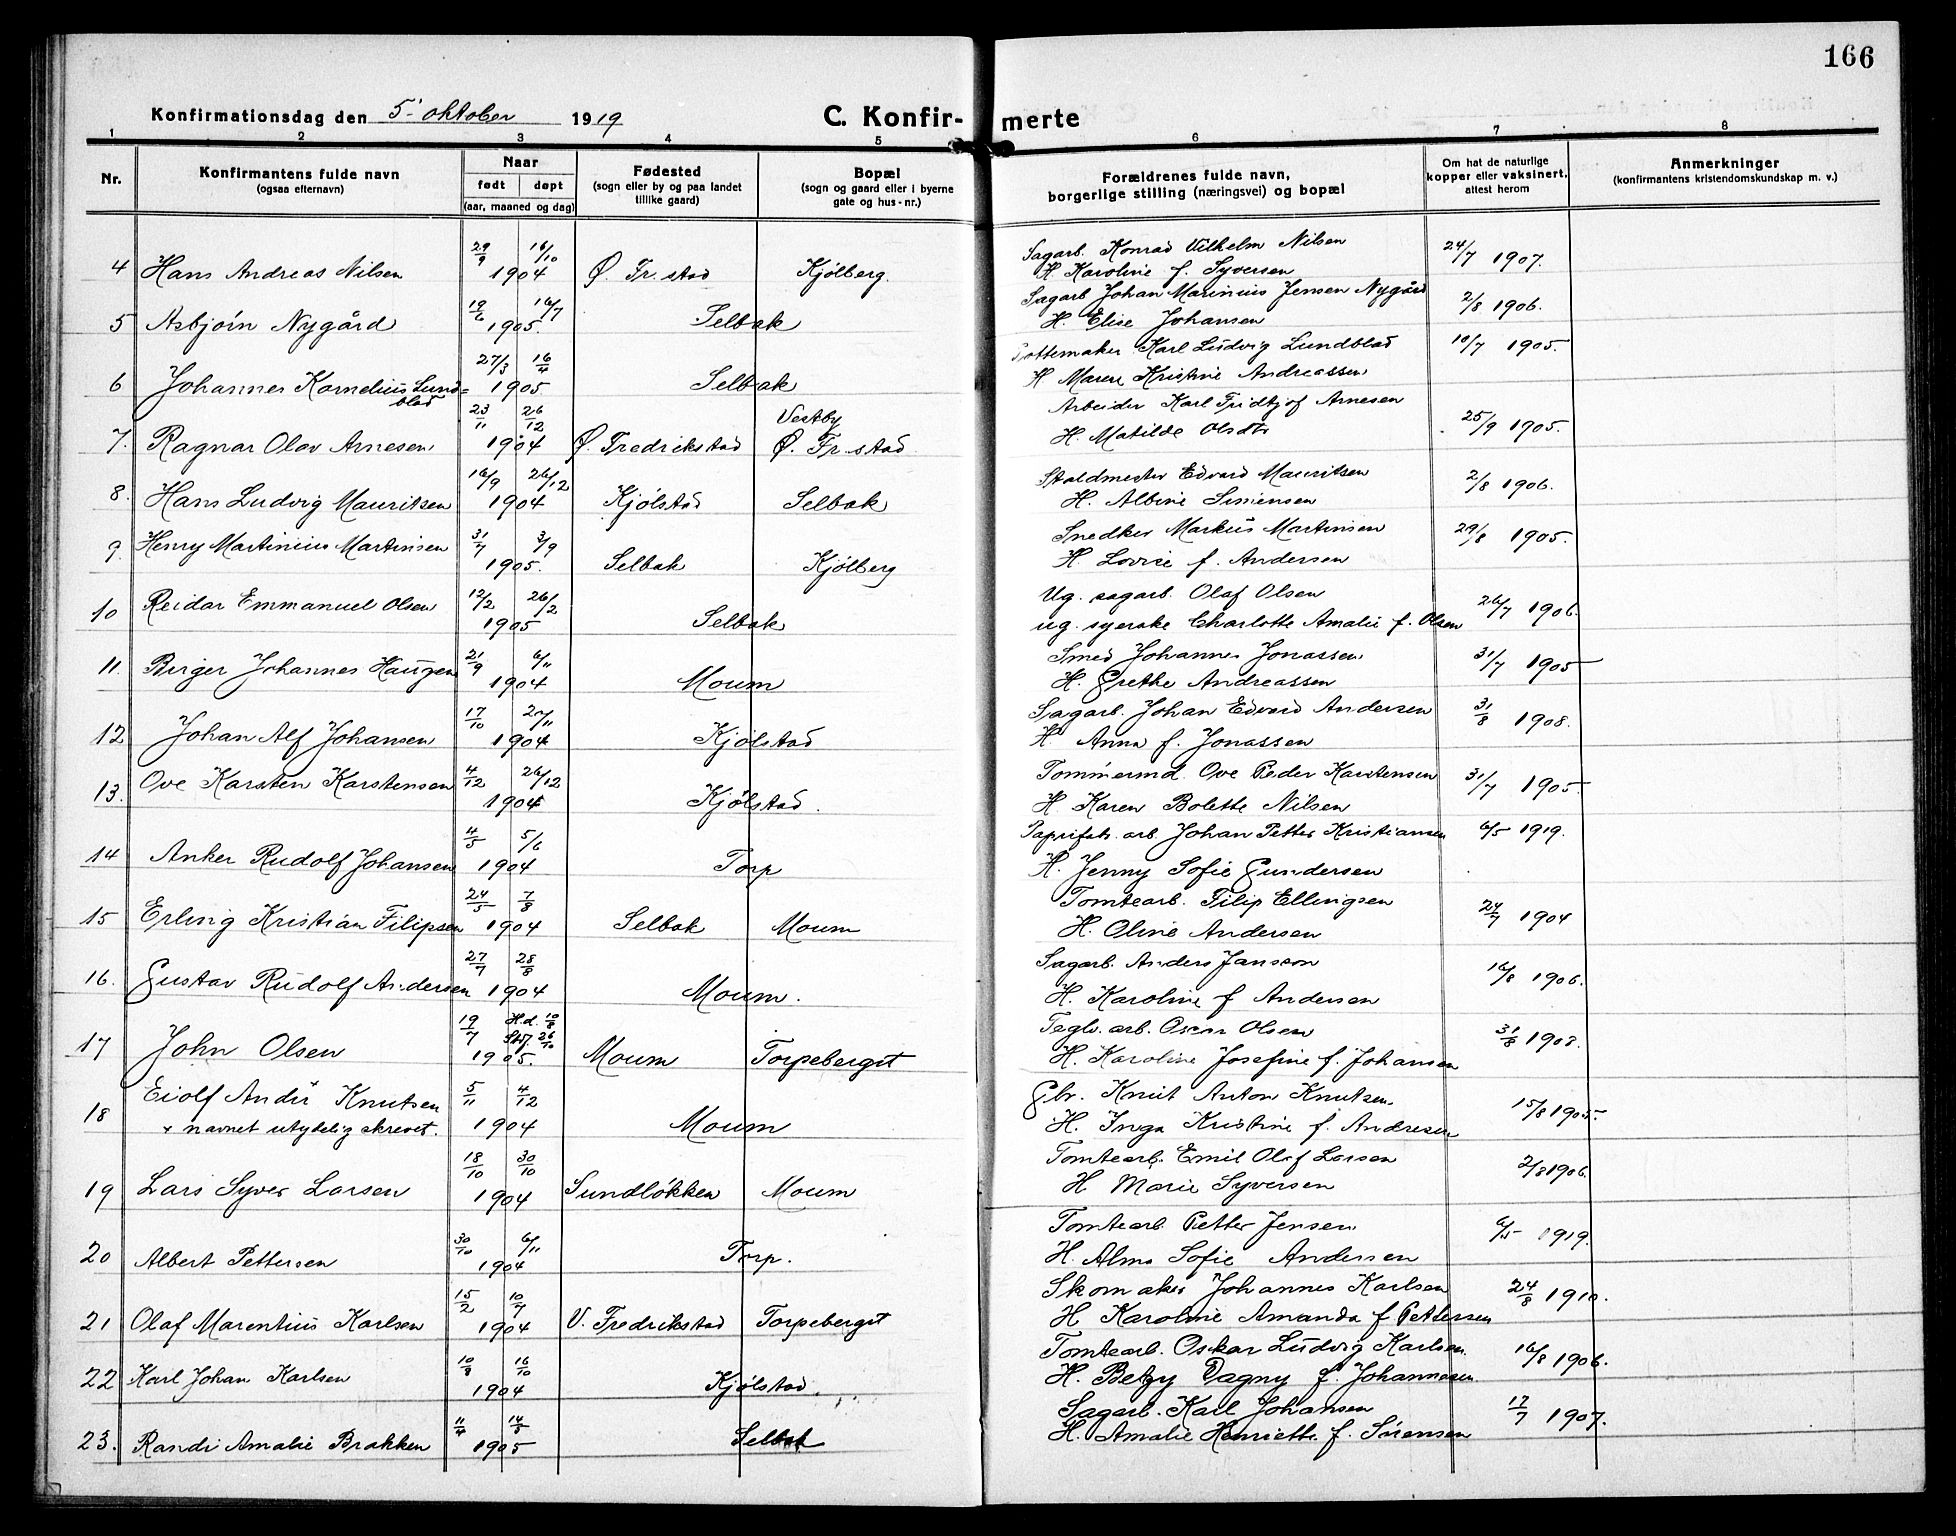 166
Konfirmationsdag den 5' oktober 1919 C. Konfir- merte
1 2 3 4 5 6 7 8
Nr. Konfirmantens fulde navn (ogsaa efternavn) Naar født døpt (aar, maaned og dag) Fødested (sogn eller by og paa landet tillike gaard) Bopæl (sogn og gaard eller i byerne gate og hus-nr.) Forældrenes fulde navn, borgerlige stilling (næringsvei) og bopæl Om hat de naturlige kopper eller vaksinert, attest herom Anmerkninger (konfirmantens kristendomskundskap m. v.)
4 Hans Andreas Nilsen 29/9 16/10 1904 Ø. Fr.stad Kjølberg. Sagarb. Konrad Vilhelm Nilsen 24/7 1907.
H. Karoline f. Syversen
5 Asbjørn Nygård 19/6 16/7 1905. Selbak Sagarb Johan Marinius Jensen Nygård 2/8 1906.
H. Elise Johansen
6 Johannes Kornelius Lund= blad 27/3 16/4 1905 Selbak Pottemaker Karl Ludvig Lundblad 10/7 1905.
H Maren Kristine Andreassen
7. Ragnar Olav Arnesen 23/11 26/12 1904 Ø. Fredrikstad Vestby Ø. Fr.stad Arbeider Karl Fridtjof Arnesen 25/9 1905.
H. Matilde Olsdtr
8. Hans Ludvig Mauritsen 16/9 26/12 1904 Kjølstad Selbak Staldmester Edvard Mauritsen 2/8 1906.
H. Albine Simensen
9. Henry Martinius Martinsen 31/7 3/9 1905. Selbak Kjølberg Snedker Markus Martinsen 29/8 1905.
H. Lovise f. Andersen
10 Reidar Emmanuel Olsen 12/2 26/2 1905 Selbak Ug. sagarb. Olaf Olsen 26/7 1906.
ug. syerske Charlotte Amalie f. Olsen
11. Birger Johannes Haugen 21/9 6/11 1904 Moum Smed Johannes Jonassen 31/7 1905
H. Grethe Andreassen
12 Johan Alf Johansen 17/10 27/11 1904 Kjølstad Sagarb. Johan Edvard Andersen 31/8 1908.
H. Anna f. Jonassen
13. Ove Karsten Karstensen 4/12 26/12 1904 Kjølstad. Tømmermd. Ove Peder Karstensen 31/7 1905.
H Karen Bolette Nilsen
14 Anker Rudolf Johansen 4/5 5/6 1904 Torp Papirfab. arb. Johan Petter Kristiansen 6/5 1919.
H. Jenny Sofie Gundersen
15 Erling Kristian Filipsen 24/5 7/8 1904 Selbak Moum Tomtearb. Filip Ellingsen 24/7 1904
H. Oline Andersen
16. Gustav Rudolf Andersen 27/7 28/8 1904 Moum. Sagarb. Anders Jansson 16/8 1906.
H. Karoline f Andersen
17 John Olsen 19/7 H.d. 10/8 Stf. 26/10 1905. Moum Torpeberget Teglv. arb. Oscar Olsen 31/8 1908.
H. Karoline Josefine f. Johansen
18 Eiolf André Knutsen 5/11 4/12 1904 Moum Gbr. Knut Anton Knutsen. 15/8 1905.
+ navnet utydelig skrevet. H. Inga Kristine f. Andresen
19 Lars Syver Larsen 18/10 30/10 1904 Sundløkken Moum Tomtearb. Emil Olaf Larsen 2/8 1906.
H. Marie Syversen
20 Albert Pettersen 30/10 6/11 1904 Torp. Tomtearb. Petter Jensen 6/5 1919.
H. Alma Sofie Andersen
21 Olaf Marentius Karlsen 15/2 10/7 1904 V. Fredrikstad Torpeberget Skomaker Johannes Karlsen 24/8 1910.
H Karoline Amanda f Pettersen
22 Karl Johan Karlsen 10/9 16/10 1904 Kjølstad. Tomtearb. Oskar Ludvig Karlsen. 16/8 1906.
H. Betzy Dagny f. Johannesen
23. Randi Amalie Brakken 11/4 14/5 1905 Selbak Sagarb. Karl Johansen 17/7 1907.
H. Amalie Henriette f. Sørensen